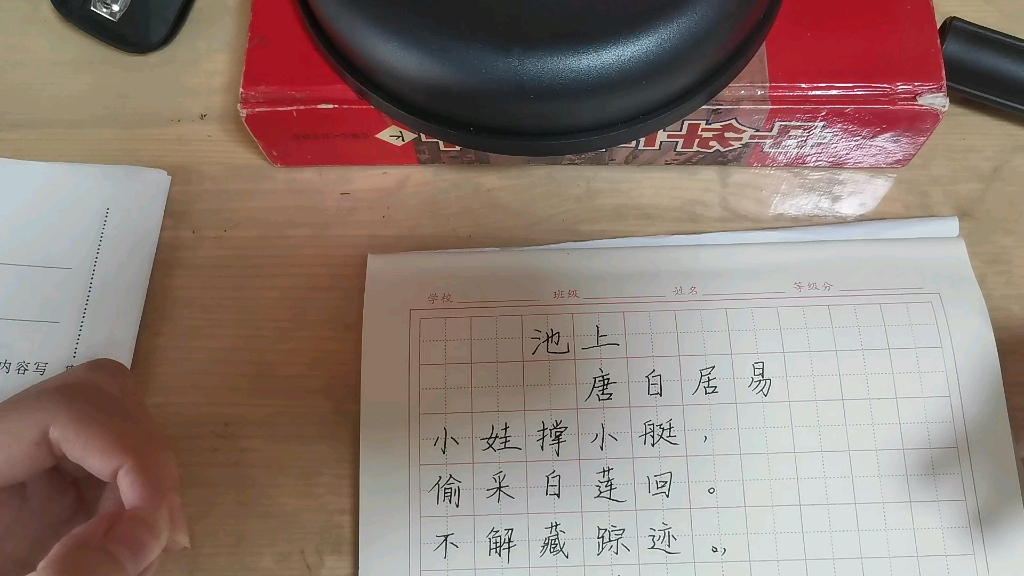 内容写
学校 班级 姓名 等级分
池上
唐白居易
小娃撑小艇，
偷采白莲回。
不解藏踪迹。，